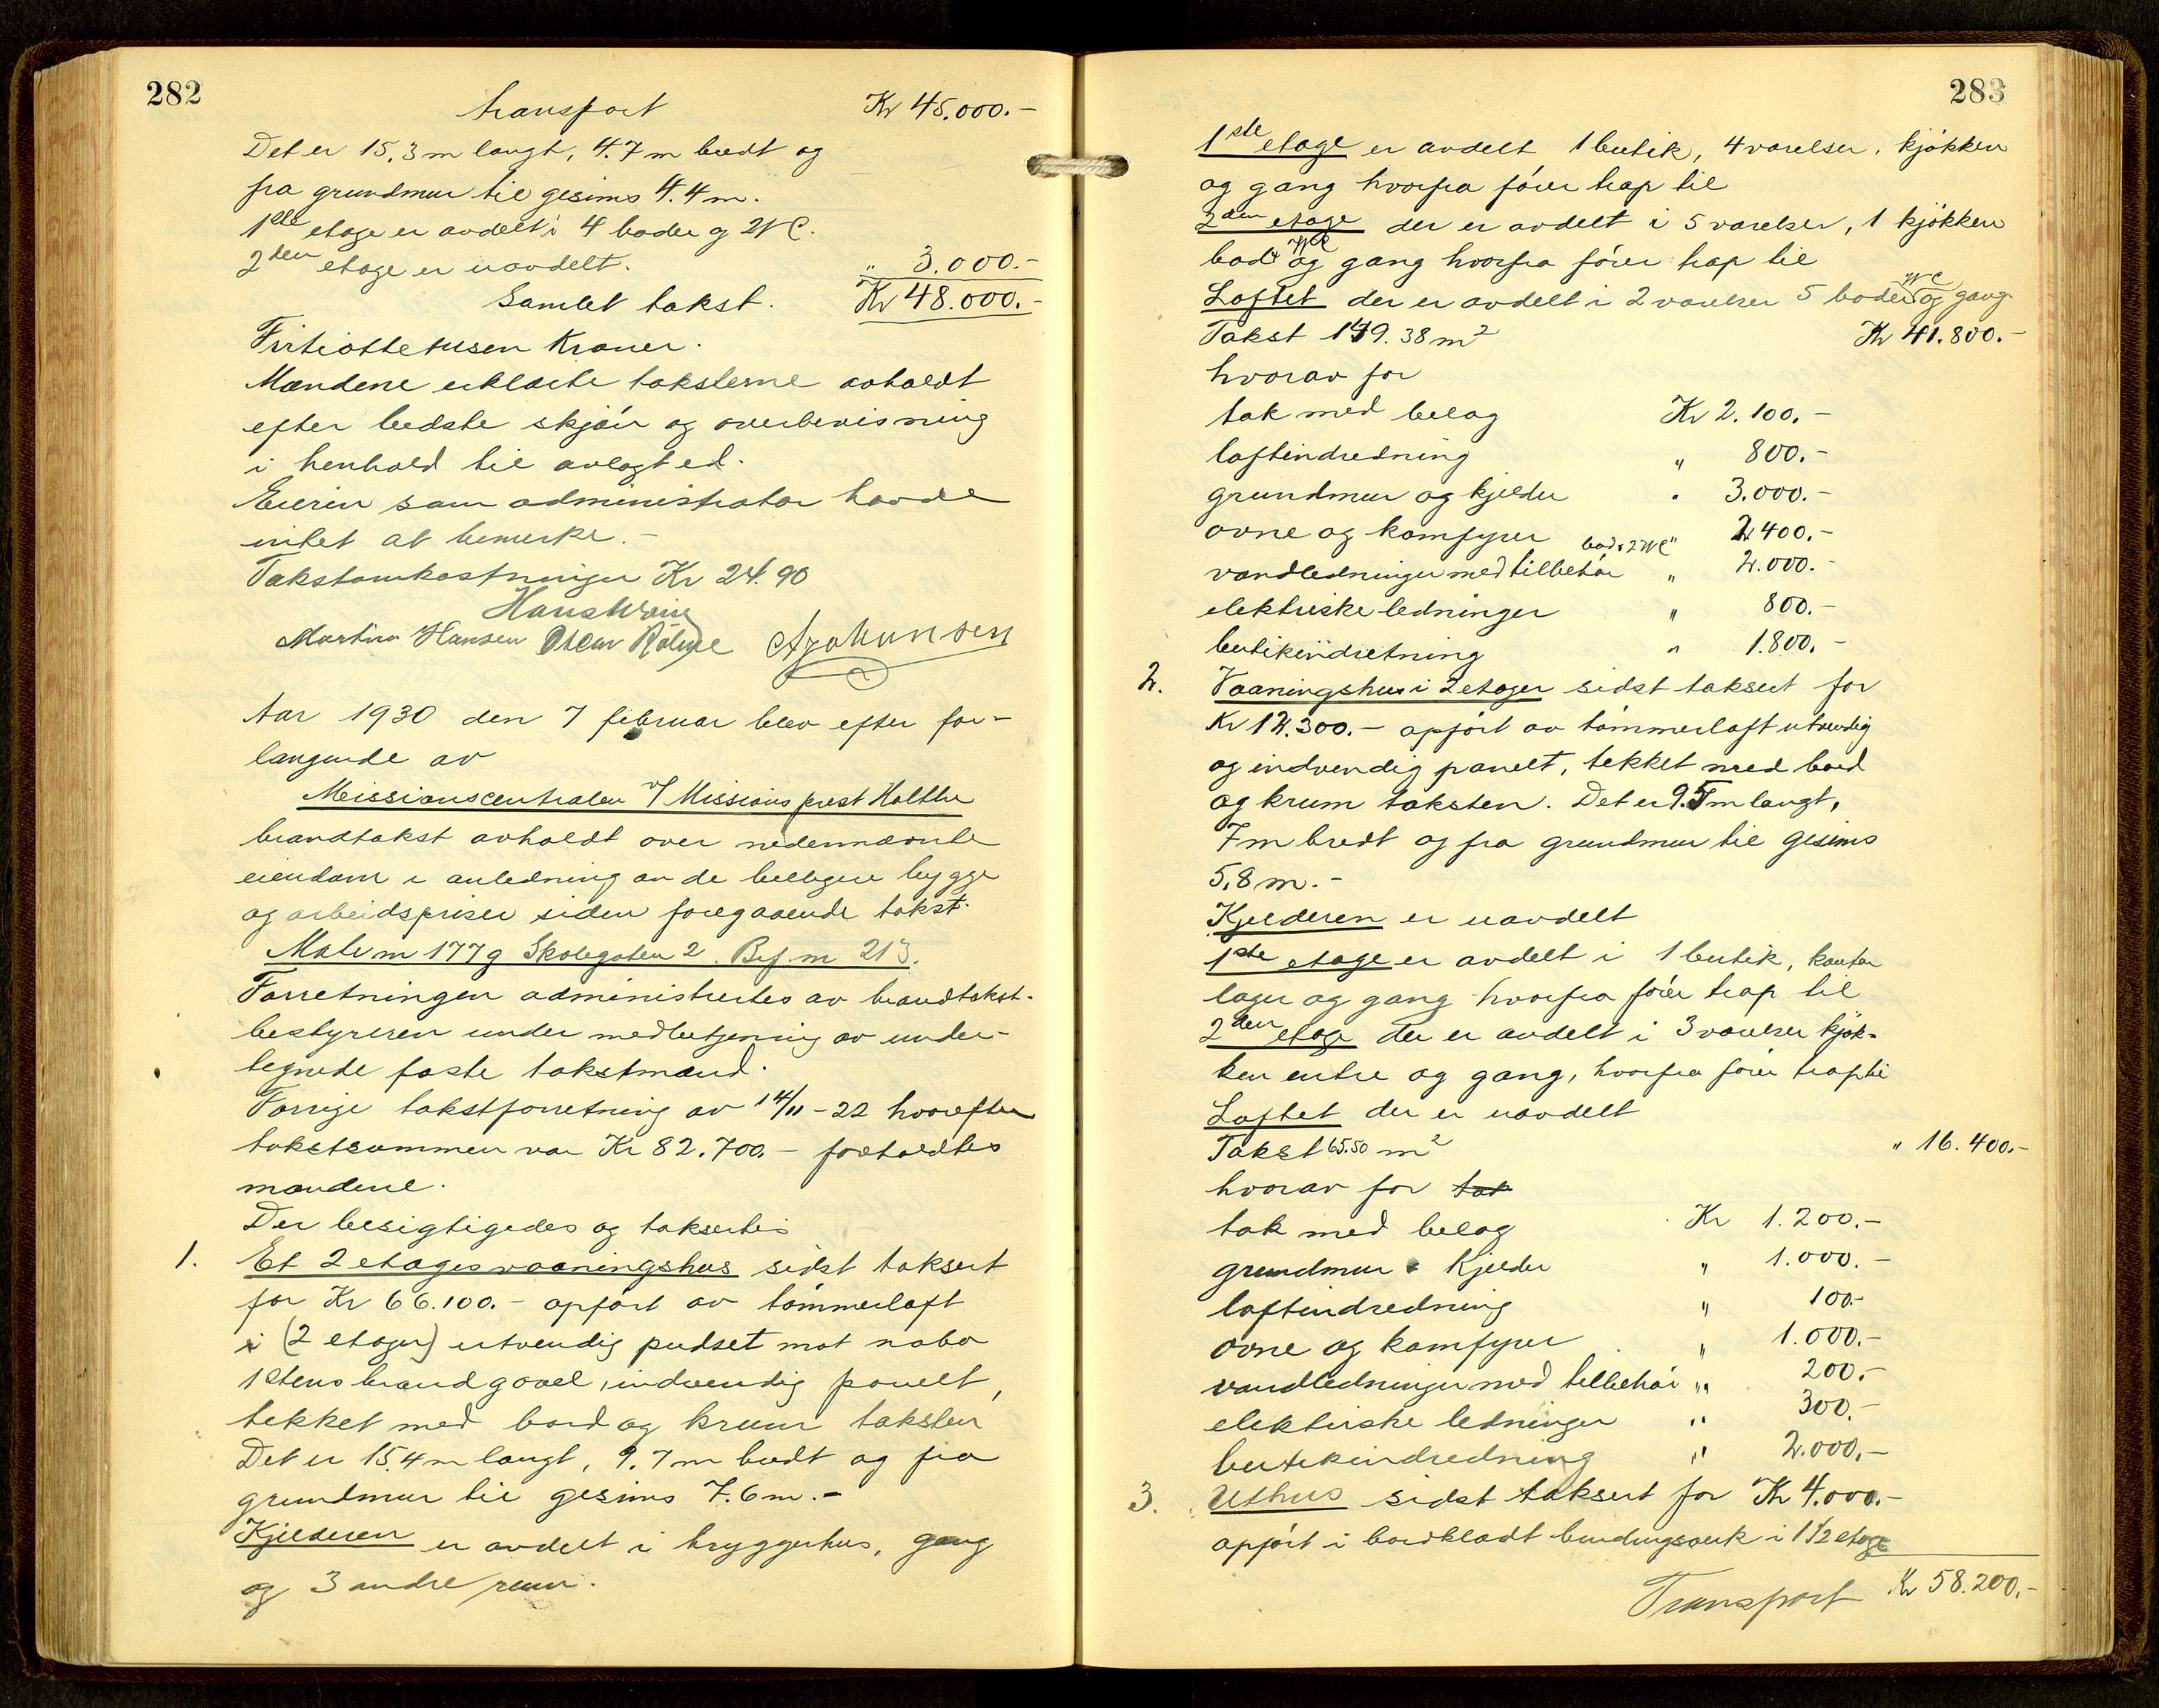 282
transport Kr 45.000.-
Det er 15,3 m langt, 4.7 m bredt og
fra grundmur til gesims 4.4 m.
1ste etage er avdelt i 4 boder og 2 WC.
2den etage er uavdelt. " 3.000.-
Samlet takst. Kr 48.000.-
Firtiottetusen Kroner.
Mændene erklærte taksterne avholdt
efter bedste skjön og overbevisning
i henhold til avlagt ed.
Eieren som administrator havde
intet at bemerke.-
Takstomkostninger Kr 24.90
Martin Hansen Oscar A Johansen
Aar 1930 den 7 februar blev efter for-
langende av
Missionscentralen v/ Missionsprest Holthe
brandtakst avholdt over nedennævnte
eiendom i anledning av de billigere bygge
og arbeidspriser siden foregaaende takst.
Matr nr 177 g Skolegaten 2. Brf. nr 213.
Forretningen administrertes av brandtakst-
bestyreren under medbetjening av under-
tegnede faste takstmænd.
Forrige takstforretning av 14/11 - 22 hvorefter
takstsummen var Kr 82.700.- foreholdtes
mændene.
Der besigtigedes og taksertes
1. Et 2 etages vaaningshus sidst taksert
for Kr 66.100.- opfört av tömmerloft
i (2 etager) utvendig pudset mot nabo
1 stens brandgavl, indvendig panelt,
tekket med bord og krum taksten
Det er 15.4 m langt, 9.7 m bredt og fra
grundmur til gesims 7.6 m.-
Kjelderen er avdelt i bryggerhus, gang
og 3 andre rum.
283
1ste etage er avdelt 1 butik, 4 værelser, kjökken
og gang hvorfra förer trap til
2den etage der er avdelt i 5 værelser, 1 kjökken
bad WC og gang hvorfra förer trap til
Loftet der er avdelt i 2 værelser 5 boder WC og gang.
Takst 149.38 m2 Kr 41.800.-
hvorav for
tak med belæg Kr 2.100.-
loftindredning " 800.-
grundmur og kjelder " 3.000.-
ovne og komfyrer " 2400.-
vandledninger med tilbehör bad. 2 WC " 2.000.-
elektriske ledninger " 800.-
butikindretning " 1.800.-
2. Vaaningshus i 2 etager sidst taksert for
Kr 12.300.- opfört av tömmerloft utvendig
og indvendig panelt, tekket med bord
og krum taksten. Det er 9.5 m langt,
7 m bredt og fra grundmur til gesims
5,8 m.-
Kjelderen er uavdelt
1ste etage er avdelt i 1 butik, kontor
lager og gang hvorfra förer trap til
2den etage der er avdelt i 3 værelser kjök-
ken entre og gang, hvorfra förer trap til
Loftet der er uavdelt
Takst 65.50 m2 " 16.400.-
hvorav for tak
tak med belæg Kr 1.200.-
grundmur & Kjelder " 1.000.-
loftindredning " 100.-
ovne og komfyrer " 1.000.-
vandledninger med tilbehör " 200.-
elektriske ledninger " 300.-
butikindredning " 2.000.-
3. Uthus sidst taksert for Kr 4.000.-
opfört i bordklædt bindingsverk i 1 1/2 etage
Transport Kr 58.200.-